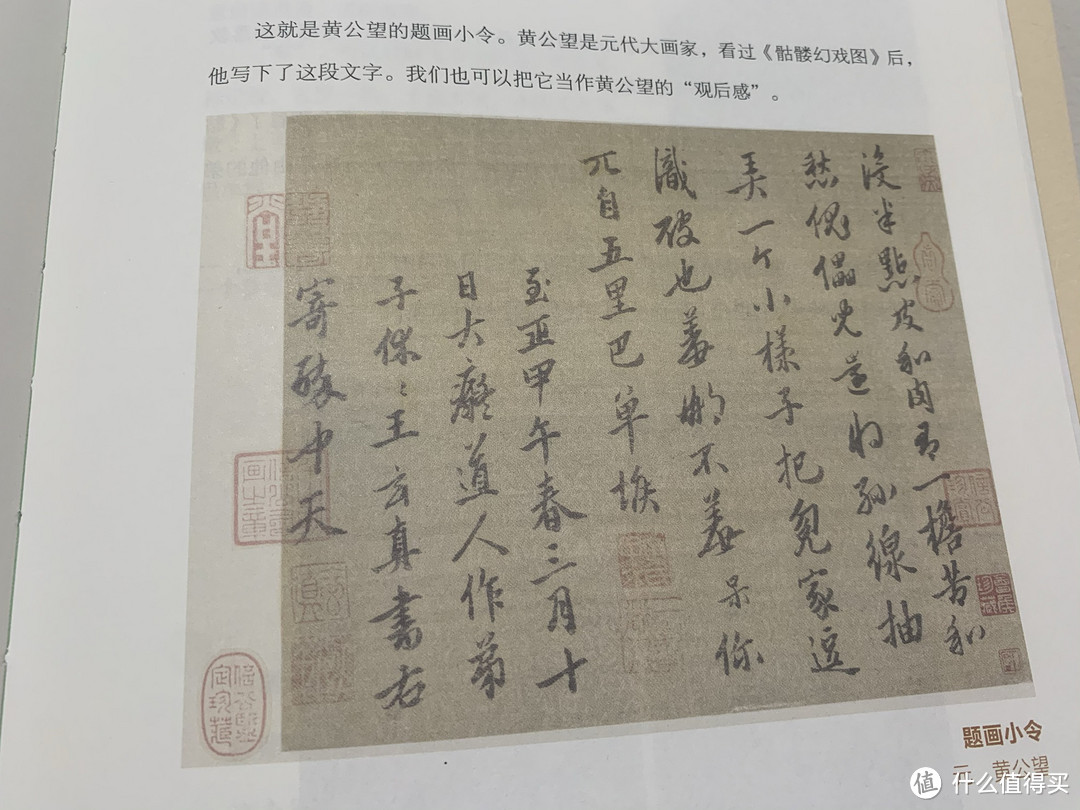 这就是黄公望的题画小令。黄公望是元代大画家，看过《骷髅幻戏图》后，
他写下了这段文字。我们也可以把它当作黄公望的“观后感”。
没半點皮和肉有一擔苦和
愁傀儡兒還將絲線抽
弄一个小樣子把冤家逗
識破也羞那不羞呆你
兀自五里巴単堠
至正甲午春三月十
日大癡道人作弟
子休休王玄真書右
寄醉中天
题画小令
元 黄公望
值 什么值得买